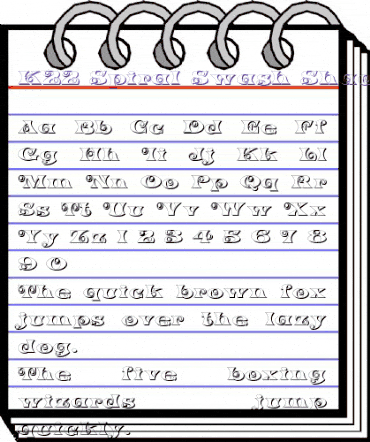 K22 Spiral Swash Sha
Aa Bb Cc Dd Ee Ff
Gg Hh Ii Jj Kk Ll
Mm Nn Oo Pp Qq Rr
Ss Tt Uu Vv Ww Xx
Yy Zz 1 2 3 4 5 6 7 8
9 0
The quick brown fox
jumps over the lazy
dog.
The five boxing
wizards jump
quickly.